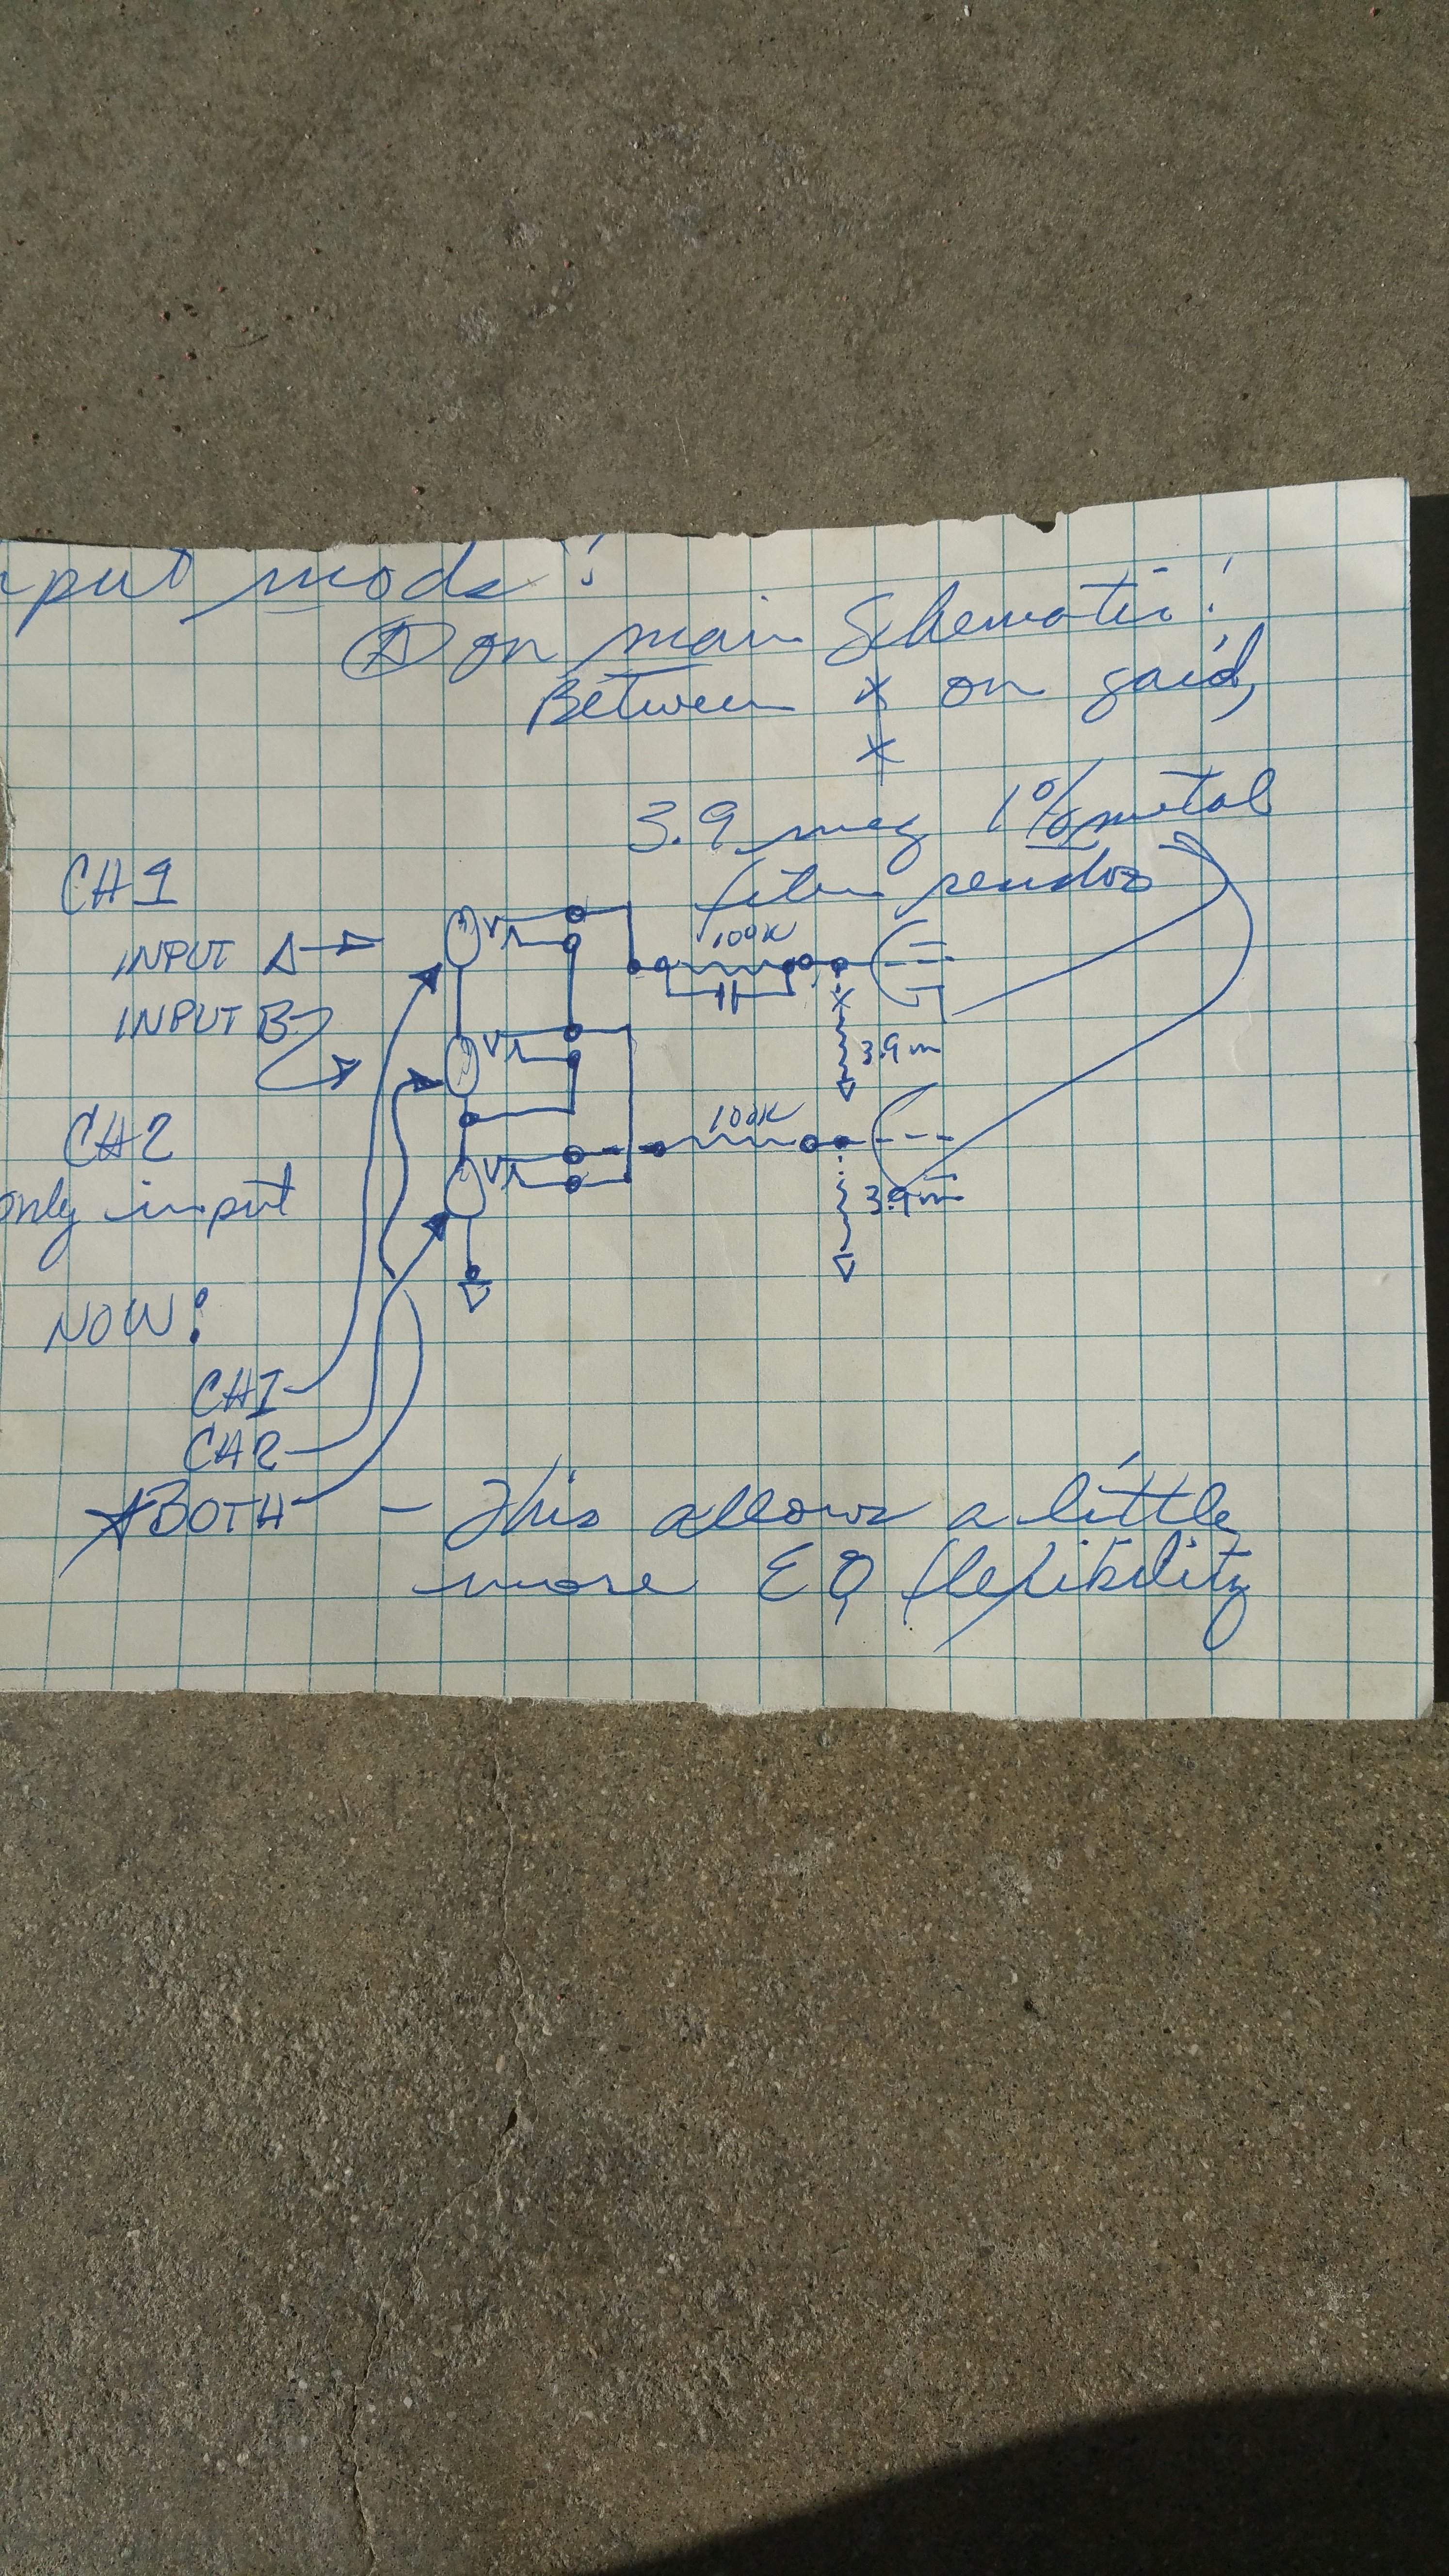 put mods!
A on main Schematic!
Between x on gaid,
x
3.9 meg 1% metal
film
CH1
100K
INPUT A
INPUT B
3.9m
CH2
100K
only input
3.9m
NOW:
CH1
CH2
BOTH - This allows a little
more EQ flexibility